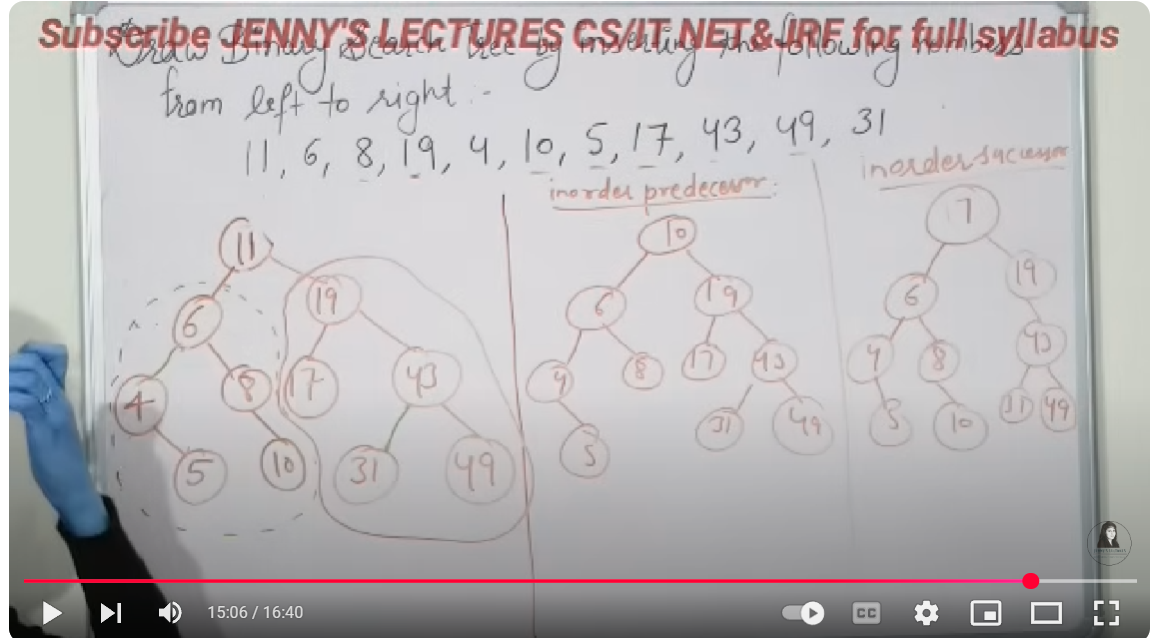 Subscribe JENNY'S LECTURES CS/IT NET& JRF for full syllabus
Draw Binary Search Tree by inserting the following numbers
from left to right :-
11, 6, 8, 19, 4, 10, 5, 17, 43, 49, 31
inorder predecessor:
inorder successor
11
6
19
4
8
17
43
5
10
31
49
10
6
19
4
8
17
43
5
31
49
17
6
19
4
8
43
5
10
31
49
15:06 / 16:40
CC